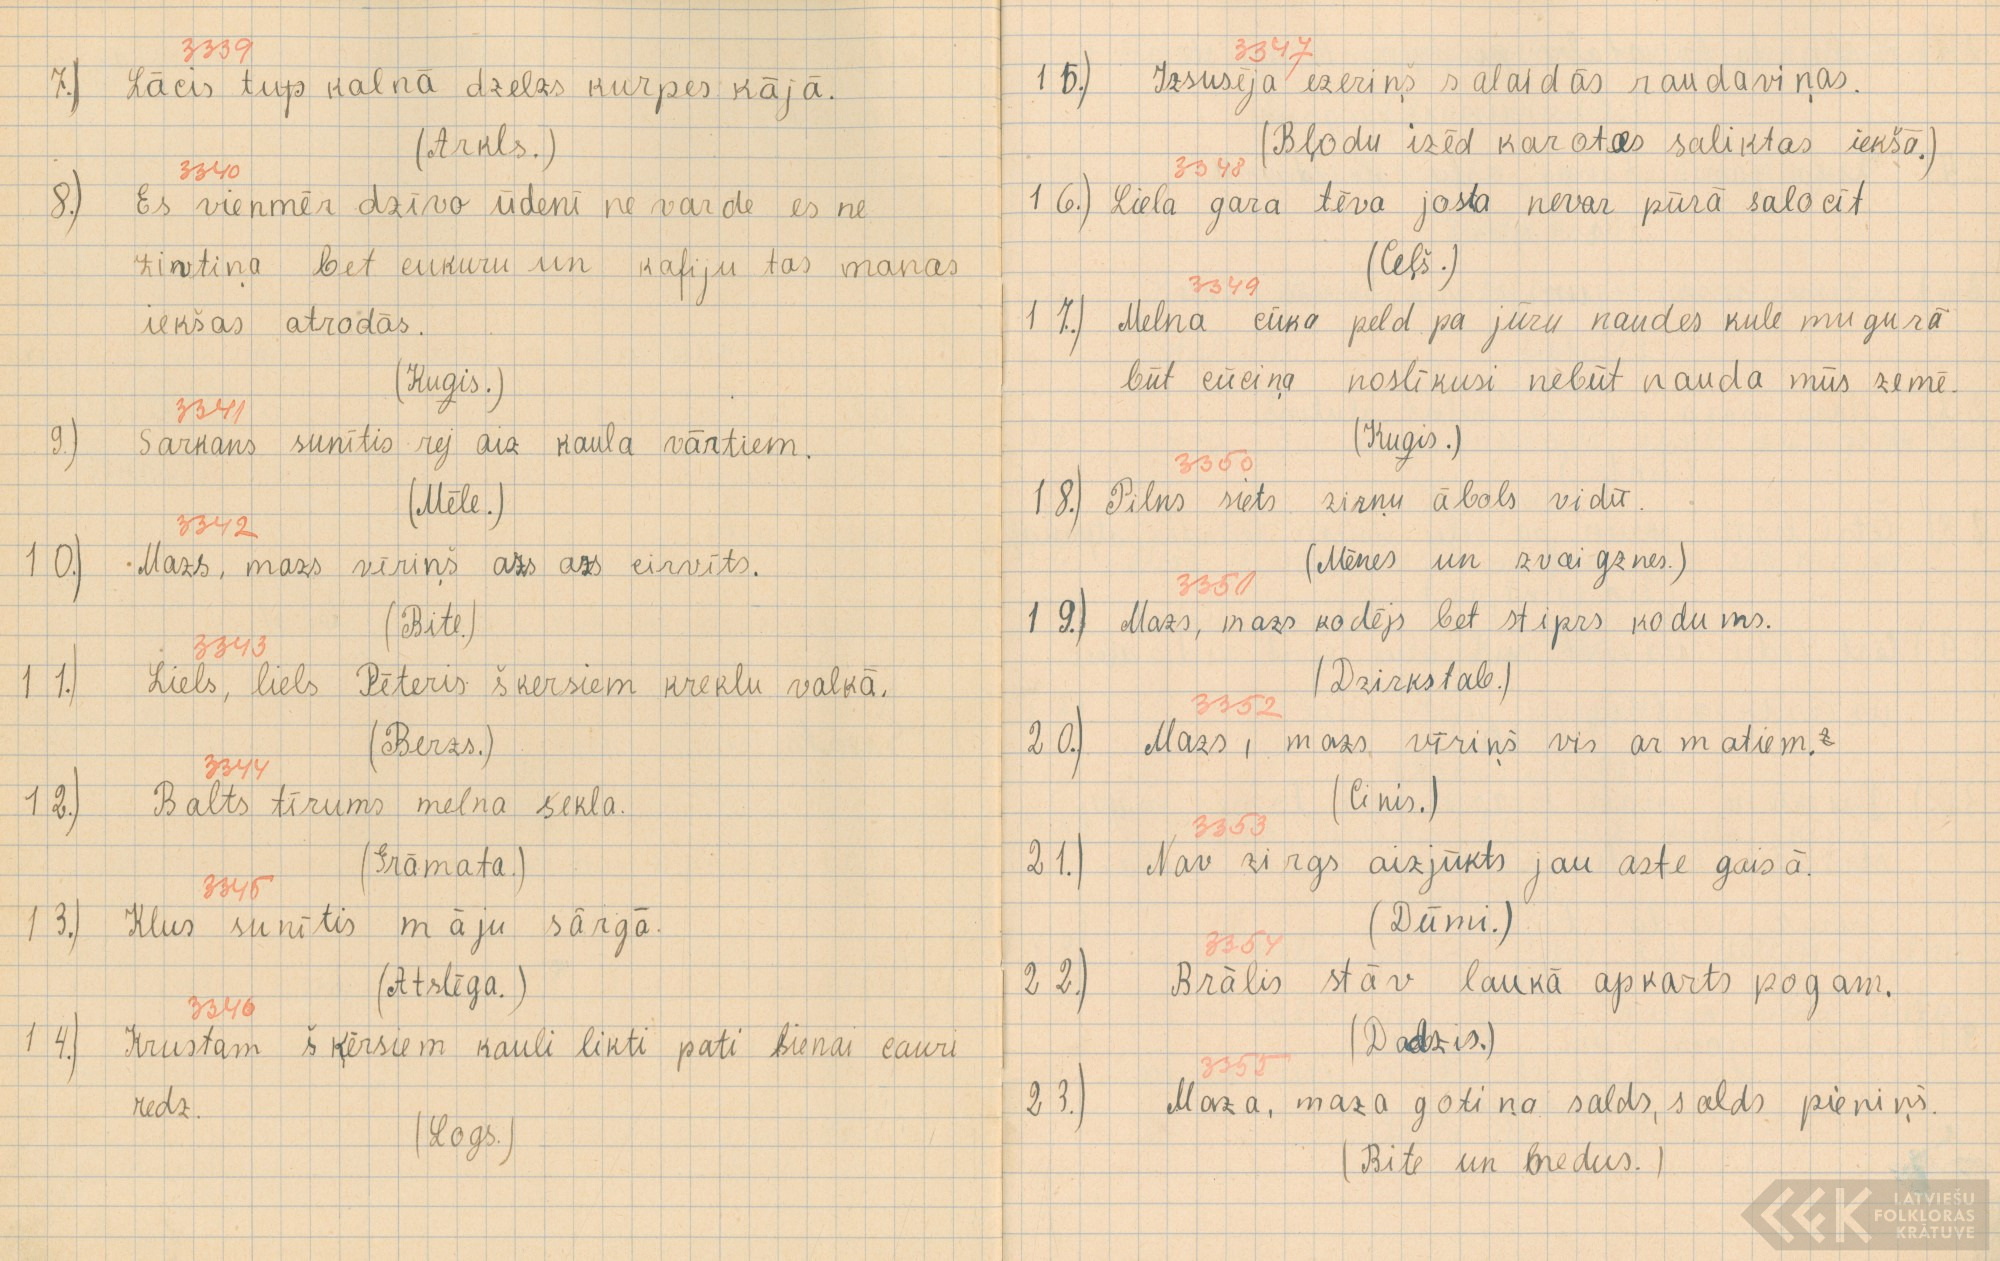 3339
7.) Lācis tup kalnā dzelzs kurpes kājā.
(Arkls.)
3340
8.) Es vienmēr dzīvo ūdenī ne varde es ne
zivtiņa bet cukuru un kafiju tas manas
iekšas atrodās.
(Kuģis.)
3341
9.) Sarkans sunītis rej aiz kaula vārtiem.
(Mēle.)
3342
10.) Mazs, mazs vīriņš azs azs cirvīts.
(Bite.)
3343
11.) Liels, liels Pēteris škersiem kreklu valkā.
(Berzs.)
3344
12.) Balts tīrums melna sekla.
(Grāmata.)
3345
13.) Klus sunītis māju sārgā.
(Atslēga.)
3346
14.) Krustam šķērsiem kauli likti pati Dienai cauri
redz.
(Logs.)
3347
15.) Izsusēja ezeriņš salaidās raudaviņas.
(Bļodu izēd karotes saliktas iekšā.)
3348
16.) Liela gara tēva josta nevar pūrā salocīt
(Ceļš.)
3349
17.) Melna cūka peld pa jūru naudes kule mugurā
būt cūciņa noslīkusi nebūt nauda mūs zemē.
(Kuģis.)
3350
18.) Pilns siets zirņu ābols vidū.
(Mēnes un zvaigznes.)
3351
19.) Mazs, mazs kodējs bet stiprs kodums.
(Dzirkstab.)
3352
20.) Mazs, mazs vīriņš vis ar matiem.
(Cinis.)
3353
21.) Nav zirgs aizjūkts jau aste gaisā.
(Dūmi.)
3354
22.) Brālis stāv laukā apkarts pogam.
(Dadzis.)
3355
23.) Maza, maza gotiņa salds, salds pieniņš.
(Bite un medus.)
LATVIEŠU
FOLKLORAS
KRĀTUVE